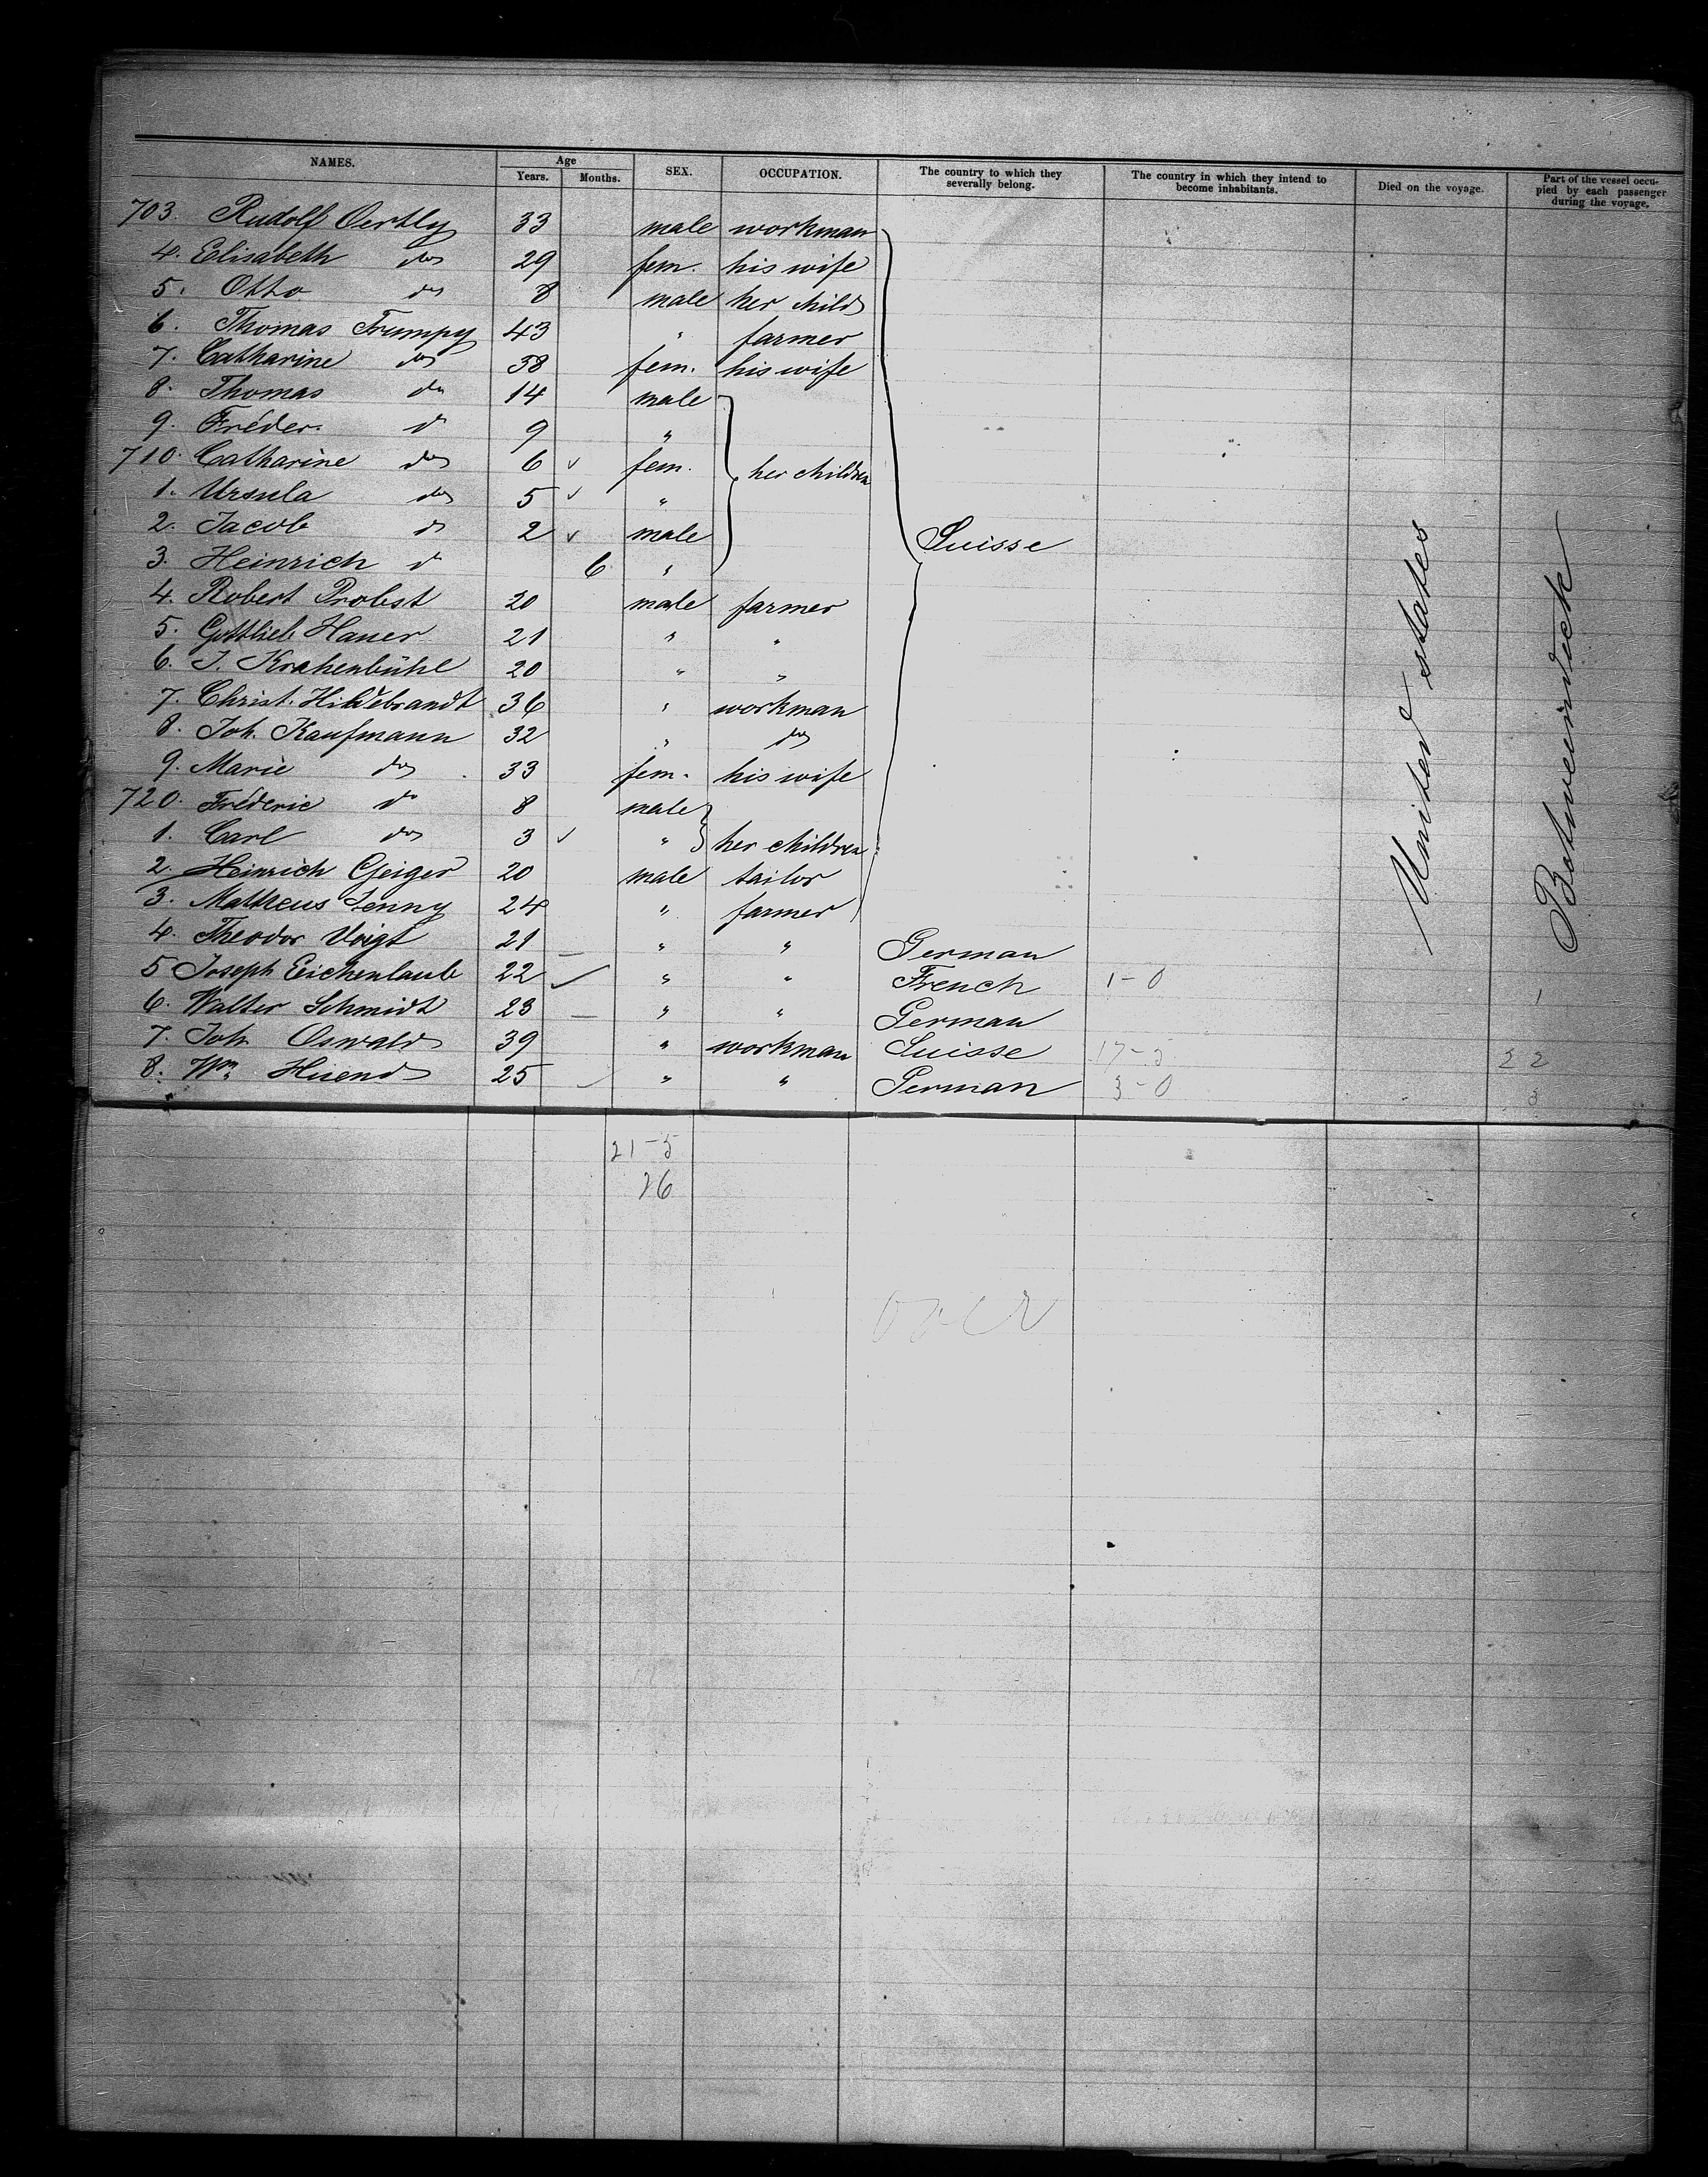 NAMES. Age Years. Months. SEX. OCCUPATION. The country to which they severally belong. The country in which they intend to become inhabitants. Died on the voyage. Part of the vessel occupied by each passenger during the voyage.
703. Rudolf Oertly 33 male workman
4. Elisabeth do 29 fem. his wife
5. Otto do 8 male her child
6. Thomas Trumpy 43 " farmer
7. Catharine do 38 fem. his wife
8. Thomas do 14 male
9. Fréder. do 9 "
710. Catharine do 6 fem. her children
1. Ursula do 5 "
2. Jacob do 2 male Suisse
3. Heinrich do 6 "
4. Robert Probst 20 male farmer
5. Gottlieb Hauer 21 " "
6. J. Krahenbühl 20 " "
7. Christ. Hildebrandt 36 " workman
8. Joh. Kaufmann 32 " do
9. Marie do 33 fem. his wife
720. Fréderic do 8 male
1. Carl do 3 " her children
2. Heinrich Geiger 20 male tailor
3. Matheus Jenny 24 " farmer
4. Theodor Voigt 21 " " German
5 Joseph Eichenlaub 22 " " French 1-0 1
6. Walter Schmidt 23 " " German
7. Joh Oswald 39 " workman Suisse 17-5 22
8. Wm Huend 25 " " German 3-0 3
United states
Betweendeck
21-5
26
over